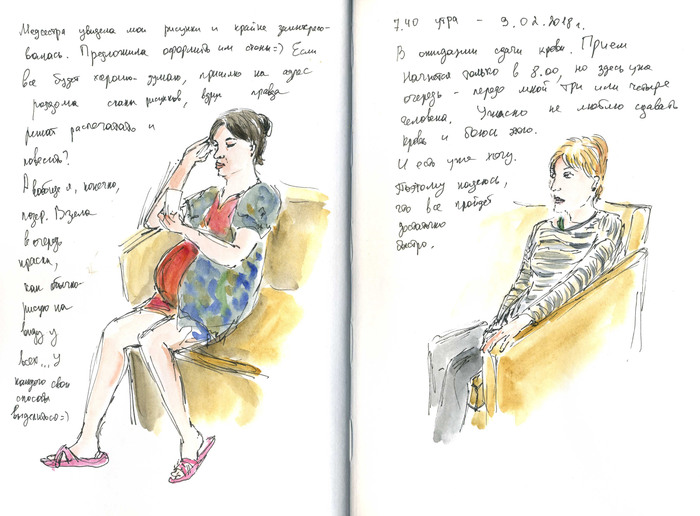 Медсестра увидела мои рисунки и крайне заинтересо-
валась. Предложила оформить им стены=) Если
все будет хорошо - думаю, пришлю на адрес
роддома сканы рисунков, вдруг правда
решат распечатать и
повесить?
А вообще я, конечно,
позер. Взяла
в очередь
краски,
как обычно
рисую на
виду у
всех... У
каждого свои
способы
выделиться=)
7.40 утра - 9.02.2018 г.
В ожидании сдачи крови. Прием
начнется только в 8.00, но здесь уже
очередь - передо мной три или четыре
человека. Ужасно не люблю сдавать
кровь и боюсь этого.
И есть уже хочу.
Поэтому надеюсь,
что все пройдет
достаточно
быстро.